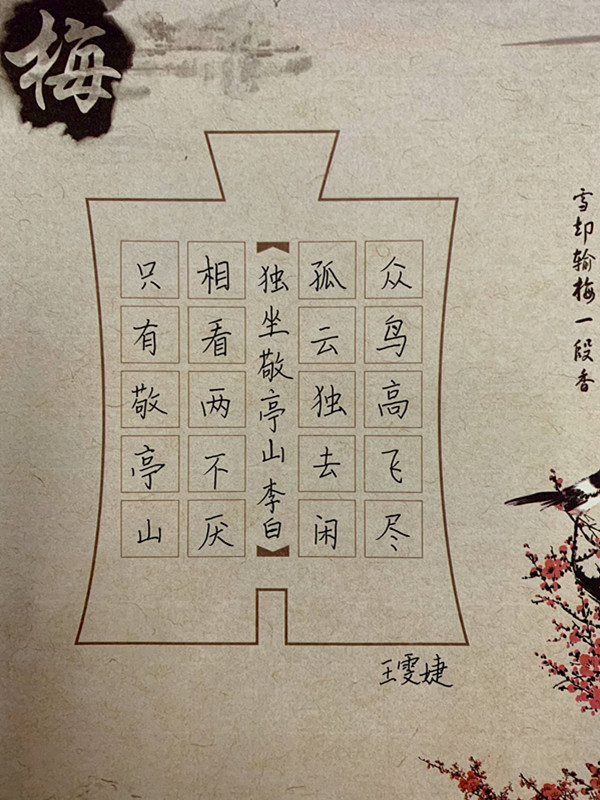 梅
雪却输梅一段香
众鸟高飞尽
孤云独去闲
独坐敬亭山 李白
相看两不厌
只有敬亭山
王雯婕